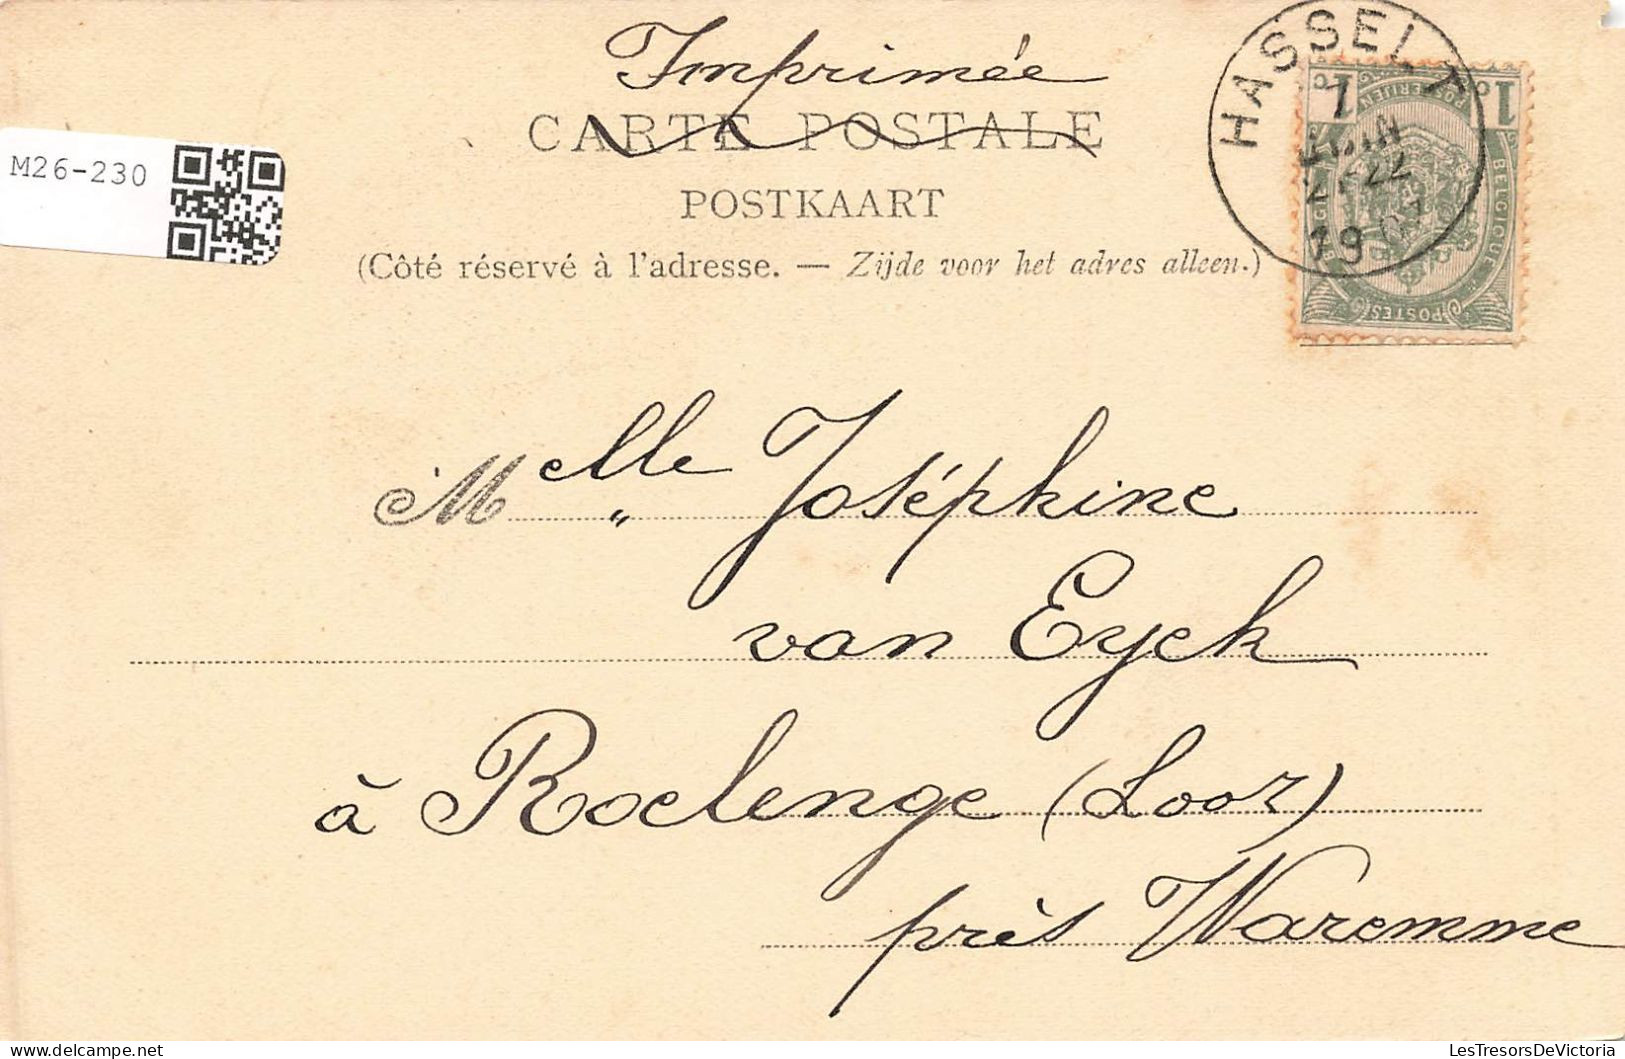 Imprimée
CARTE POSTALE
POSTKAART
(Côté réservé à l'adresse. — Zijde voor het adres alleen.)
M26-230
HASSELT
1
JUIN
22
19
1c
1c
POSTERIJEN
BELGIQUE
POSTES
Melle Joséphine
van Eyck
à Roelenge (Looz)
près Waremme
LesTresorsDeVictoria